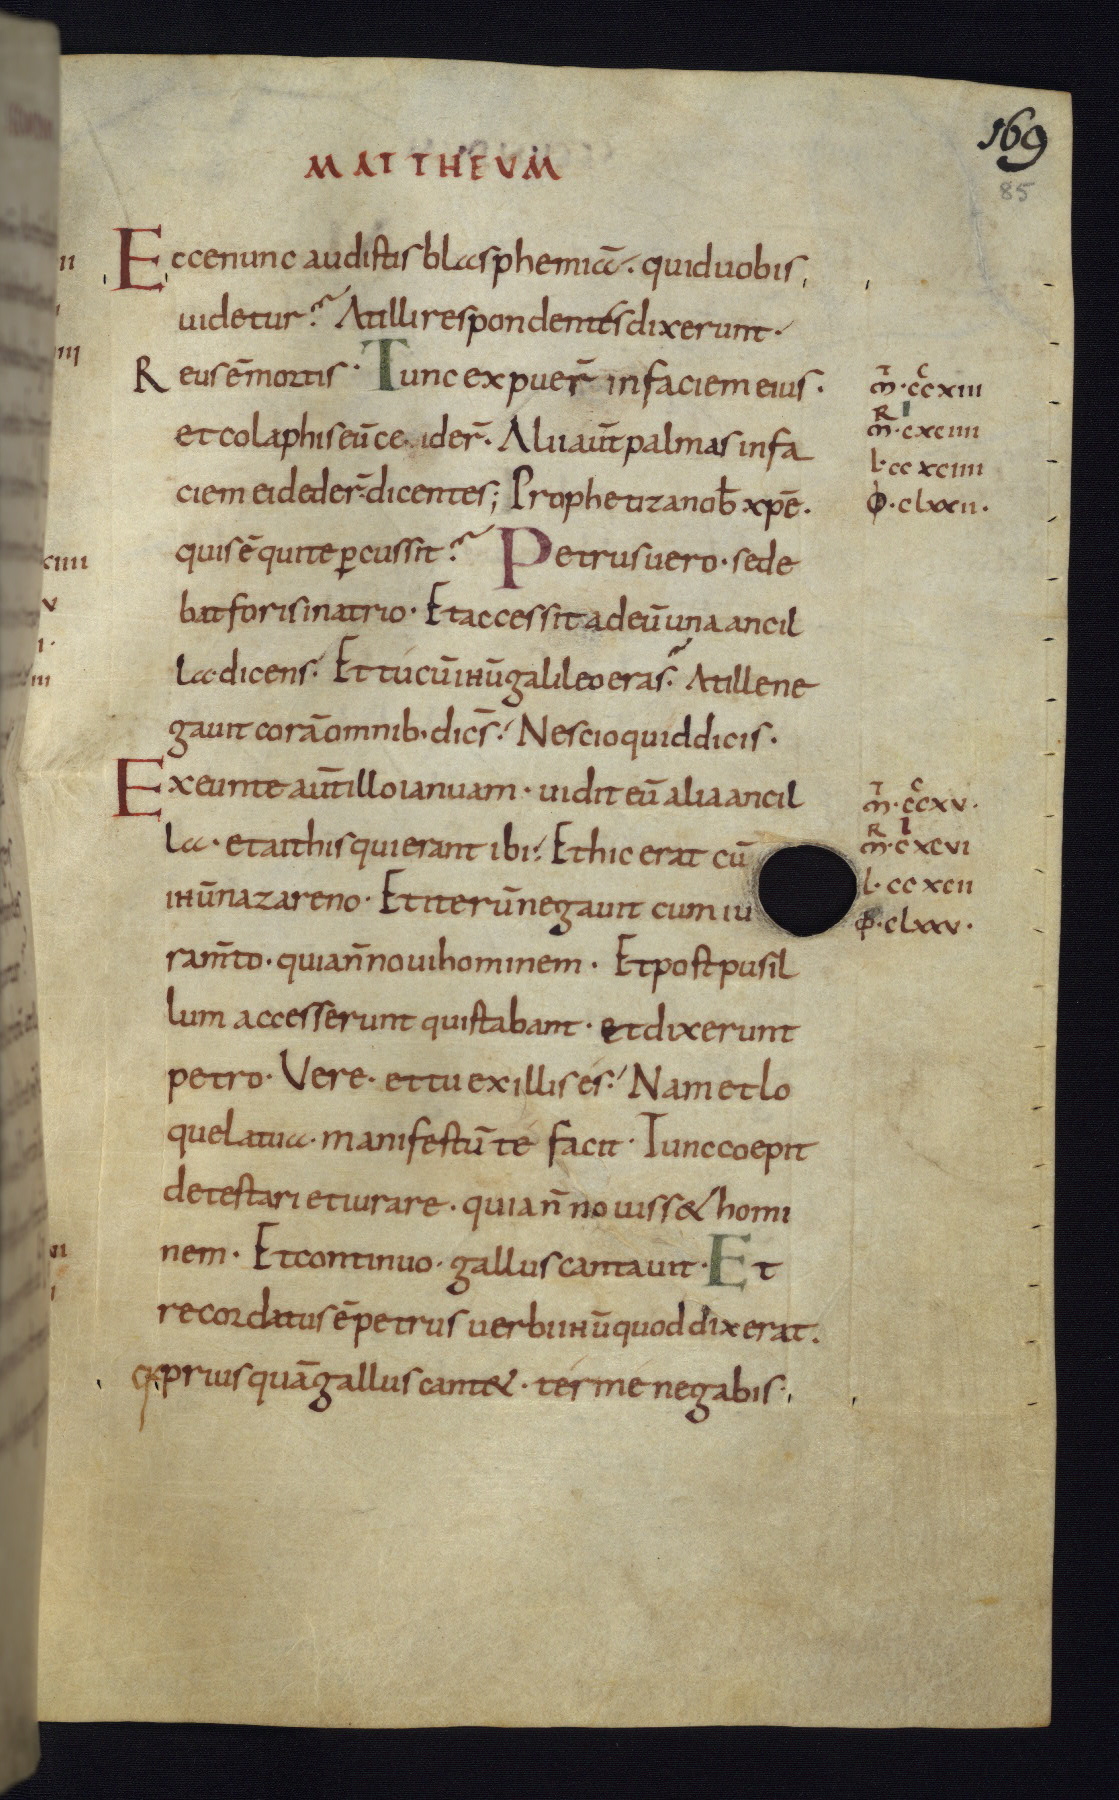 169
85
MATTHEUM
Ecce nunc audistis blasphemiā. quid uobis
uidetur? At illi respondentes dixerunt.
Reus ē mortis. Tunc expuer̄ in faciem eius.
et colaphis eū ceciderr̄. Alii aūt palmas in fa
ciem ei deder̄ dicentes; Prophetiza nob̄ xp̄e.
quis ē qui te p̱cussit? Petrus uero. sede
bat foris in atrio. Et accessit ad eū una ancil
la dicens. Et tú cū ihū galileo eras? At ille ne
gauit corā omnib. dics̄. Nescio quid dicis.
Exeunte aūt illo ianuam. uidit eū alia ancil
la. et ait his qui erant ibi. Et hic erat cū
ihū nazareno. Et iterū negauit cum iu
ram̄to. quia n̄ noui hominem. Et post pusil
lum accesserunt qui stabant. et dixerunt
petro. Vere. et tu ex illis és. Nam et lo
quela tua. manifestū té facit. Tunc coepit
detestari et iurare. quia n̄ nouiss& homi
nem. Et continuo. gallus cantauit. Et
recordatus ē petrus uerbi ihū quod dixerat.
priusquā gallus cant&. tér mé negabis.
m̄. ccxiii
R I
m̄. cxciiii
l. ccxciiii
clxxii.
m̄. ccxv.
R I
m̄. cxcvi
l. ccxcii
clxxv.